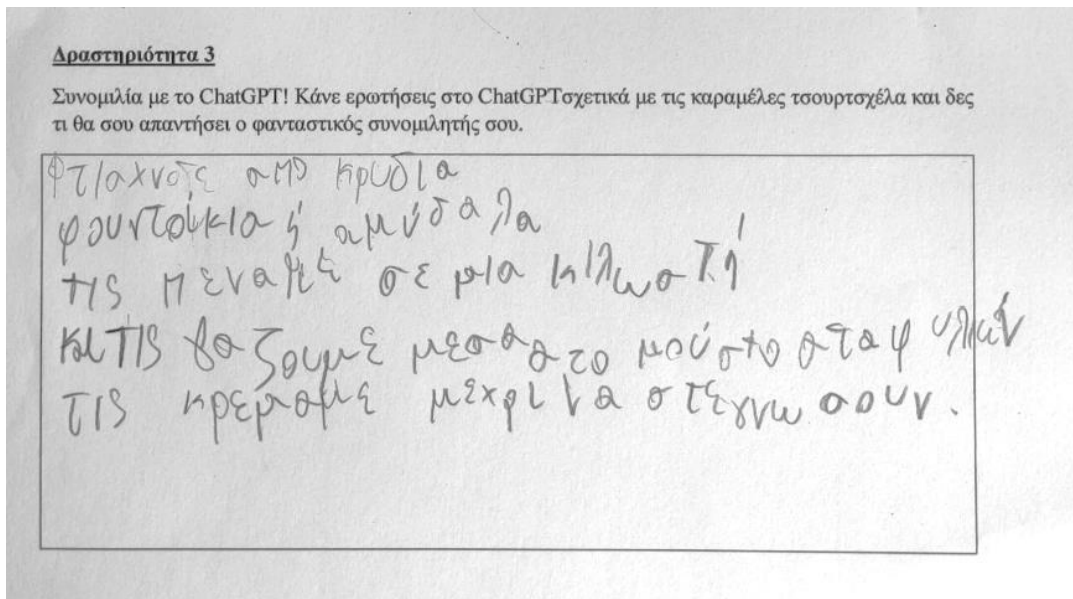 Δραστηριότητα 3
Συνομιλία με το ChatGPT! Κάνε ερωτήσεις στο ChatGPTσχετικά με τις καραμέλες τσουρτσχέλα και δες
τι θα σου απαντήσει ο φανταστικός συνομιλητής σου.
φτιαχνοτε απο κρυδια
φουντούκια ή αμύδαλα
τις πεναμε σε μια κιλωστή
κε τις βαζουμε μεσα στο μούστο σταφυλιών
τις κρεμαμε μεχρι να στεγνωσουν.